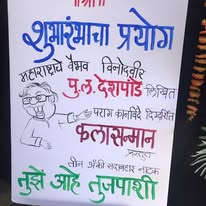 शुभारंभाचा प्रयोग
महाराष्ट्राचे वैभव विनोदवीर
पु.ल. देशपांडे लिखित
पराग कानविंदे दिग्दर्शित
कलासन्मान
प्रस्तुत
तीन अंकी सदाबहार नाटक
तुझें आहे तुजपाशी